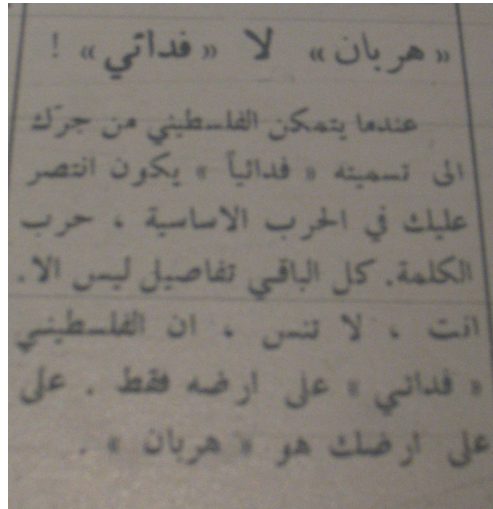 « هربان » لا « فدائي » !
عندما يتمكن الفلسطيني من جرّك
الى تسميته « فدائياً » يكون انتصر
عليك في الحرب الاساسية ، حرب
الكلمة. كل الباقي تفاصيل ليس الا.
انت ، لا تنس ، ان الفلسطيني
« فدائي » على ارضه فقط . على
على ارضك هو « هربان » .